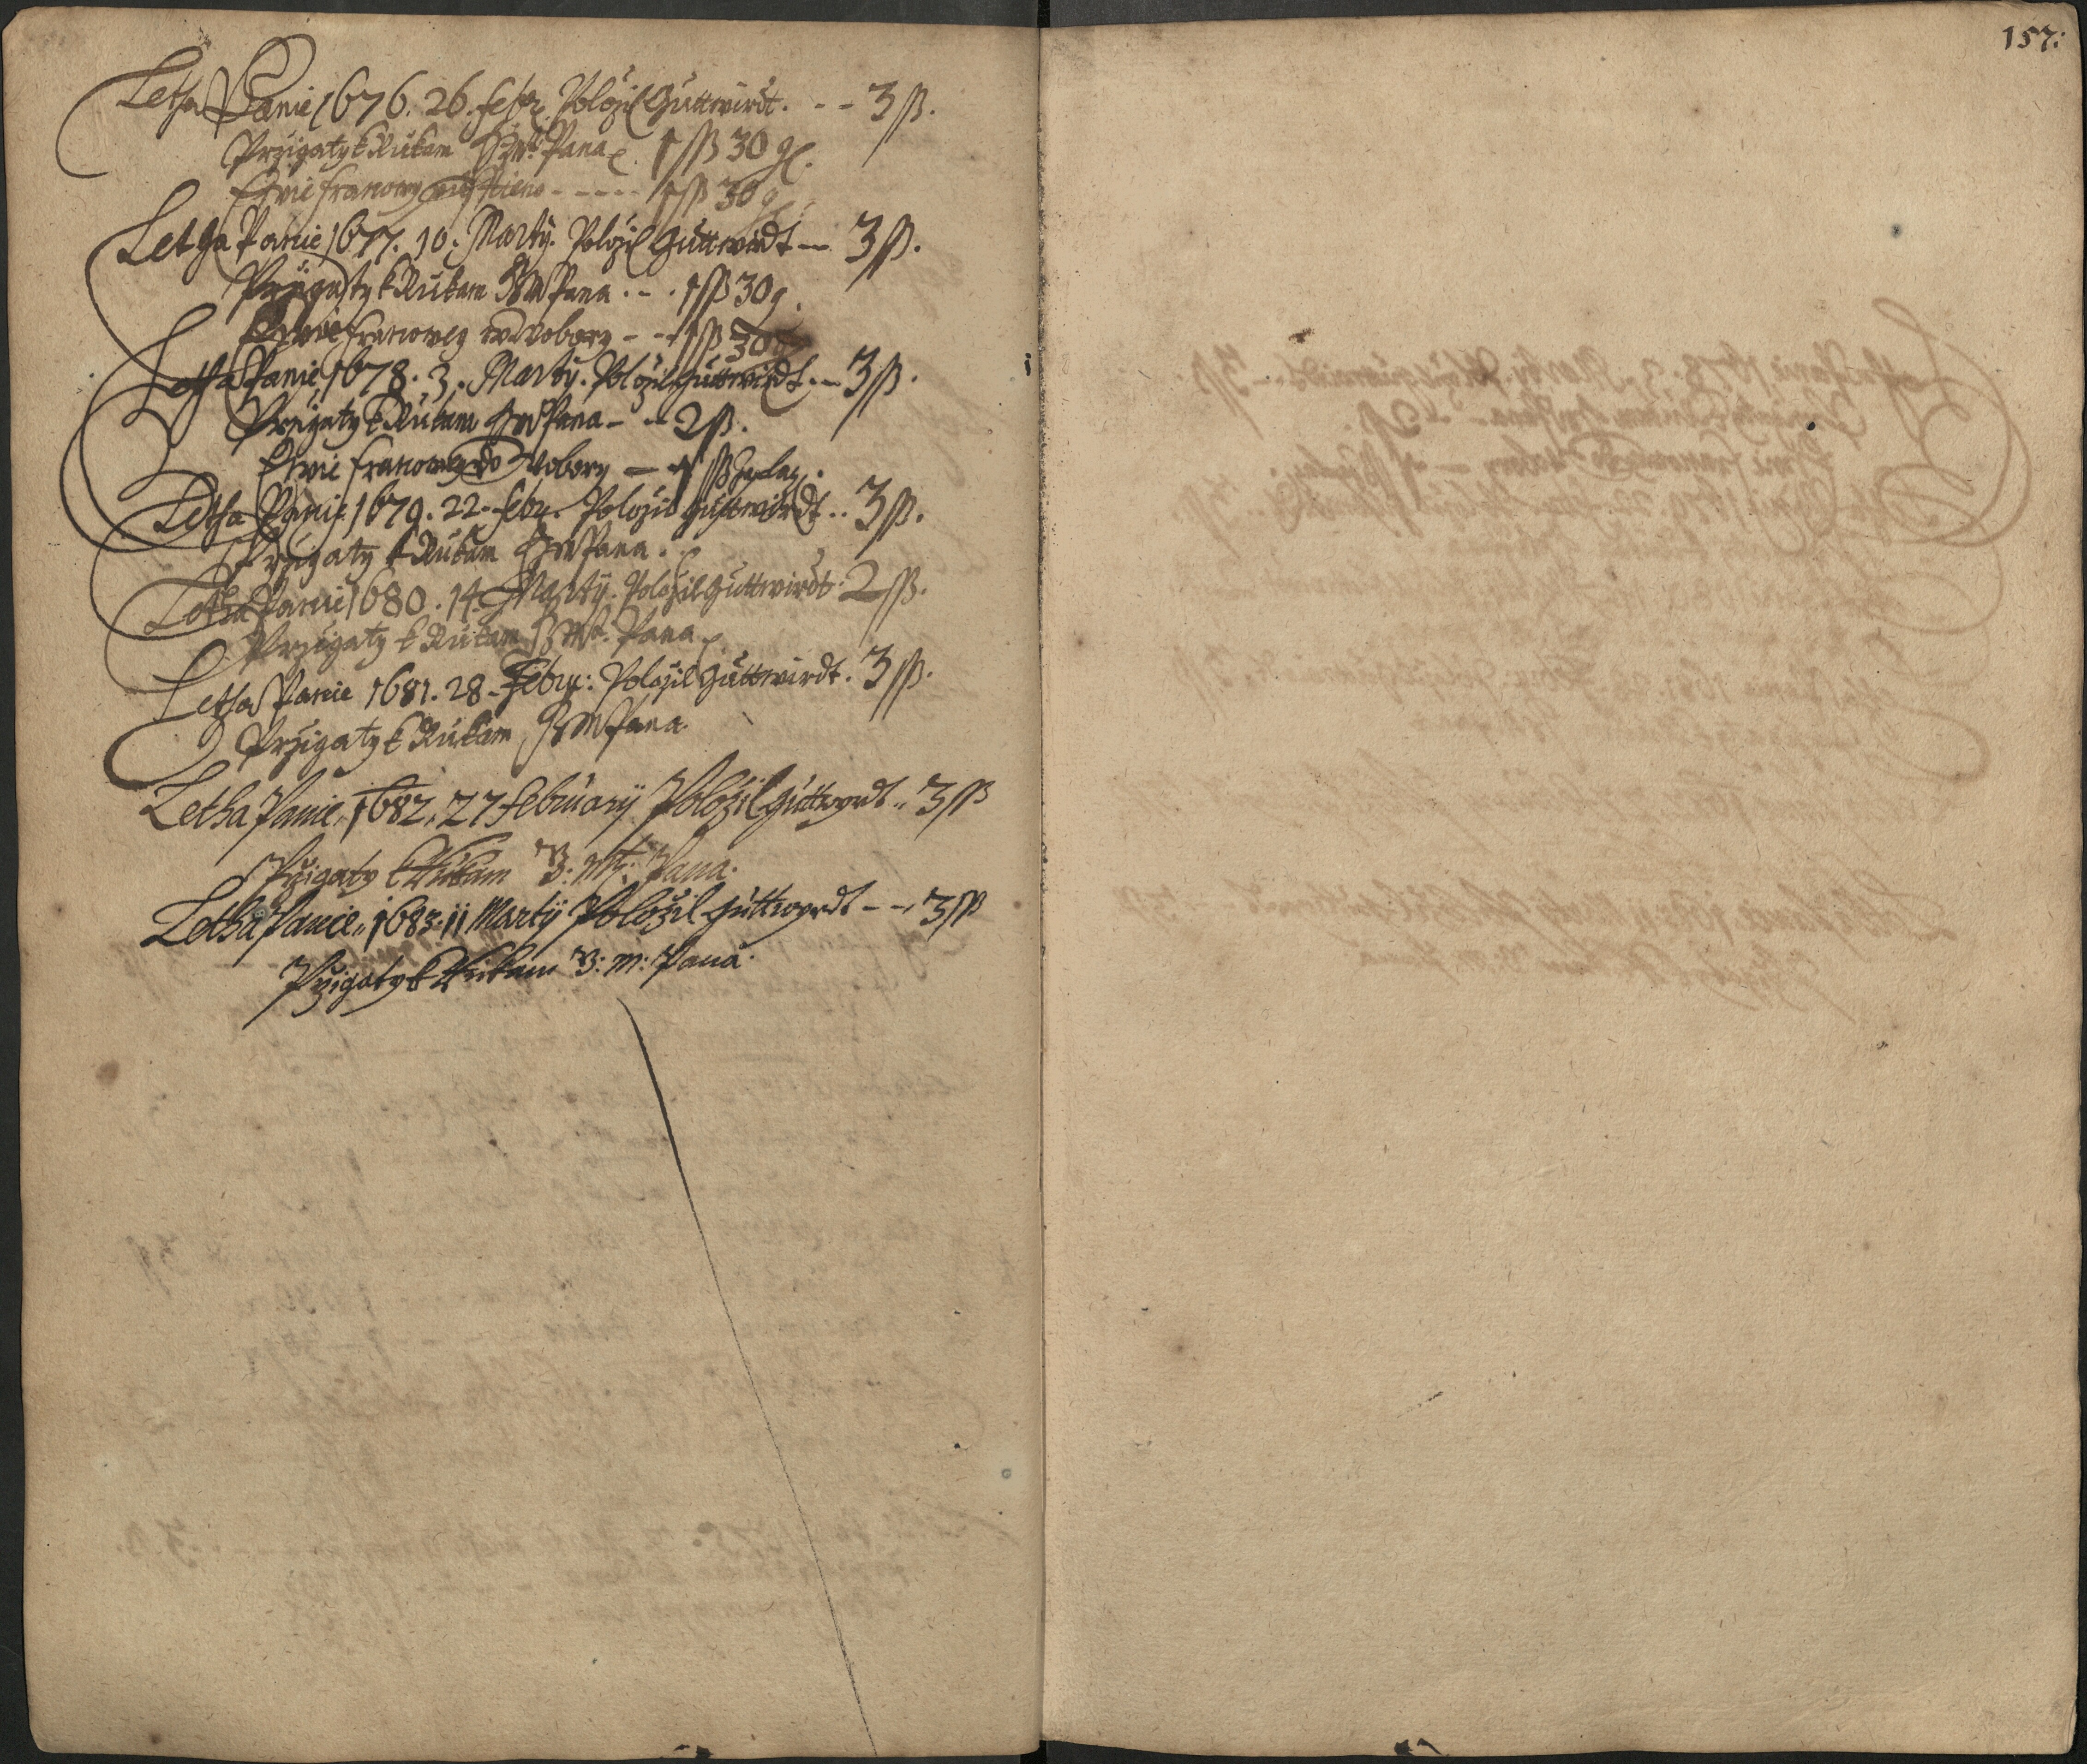 Letha Panie 1676. 26. febr. Položil Guttwirdt. - - 3 ß.
Przigaty k Rukam Pana 1 ß 30 g.
Ewie Franowy - - - - - 1 ß 30 g
Letha Panie 1677. 10. Marty. Položil Guttwirdt — 3 ß.
Przigaty k Rukam Pana . - . 1 ß 30 g.
Ewie Franowey w Wobory - - 1 ß 30
Letha Panie 1678. 3. Marty. Položil Guttwirdt. — 3 ß.
Przigaty k Rukam Pana - - 2 ß.
Ewie Franowey do Wobory — 1 ß
Letha Panie 1679. 22. febr. Položil Guttwirdt .. 3 ß.
Przigaty k Rukam Pana .
Letha Panie 1680. 14. Marty. Položil Guttwirdt. 2 ß.
Przigaty k Rukam Pana
Letha Panie 1681. 28. Febru: Položil Guttwirdt. 3 ß.
Przigaty k Rukam Pana.
Letha Panie, 1682, 27 February Položil Guttwyrdt .. 3 ß
Przigaty k Rukam V: Mti: Pana.
Letha Panie, 1683. 11 Martij Položil Guttwyrdt - - 3 ß
Przigaty k Rukam V: M: Pana.
157: